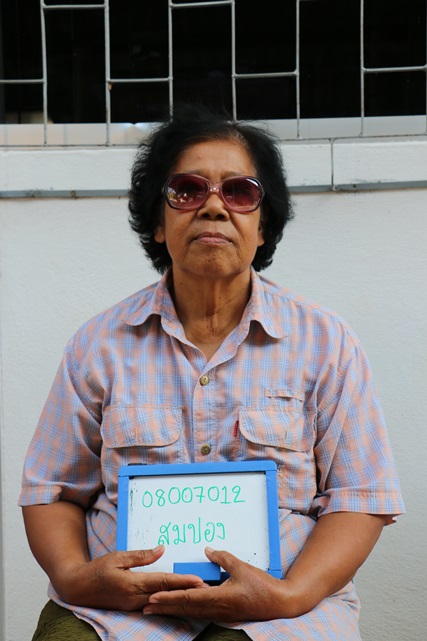 08007012
สมปอง